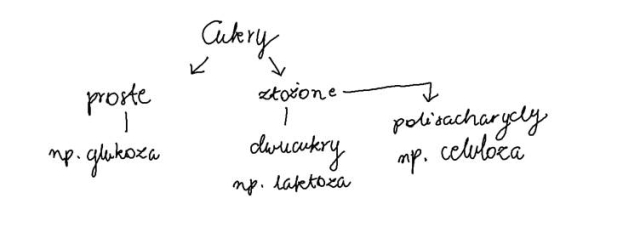 Cukry
proste
złożone
np. glukoza
dwucukry
np. laktoza
polisacharydy
np. celuloza